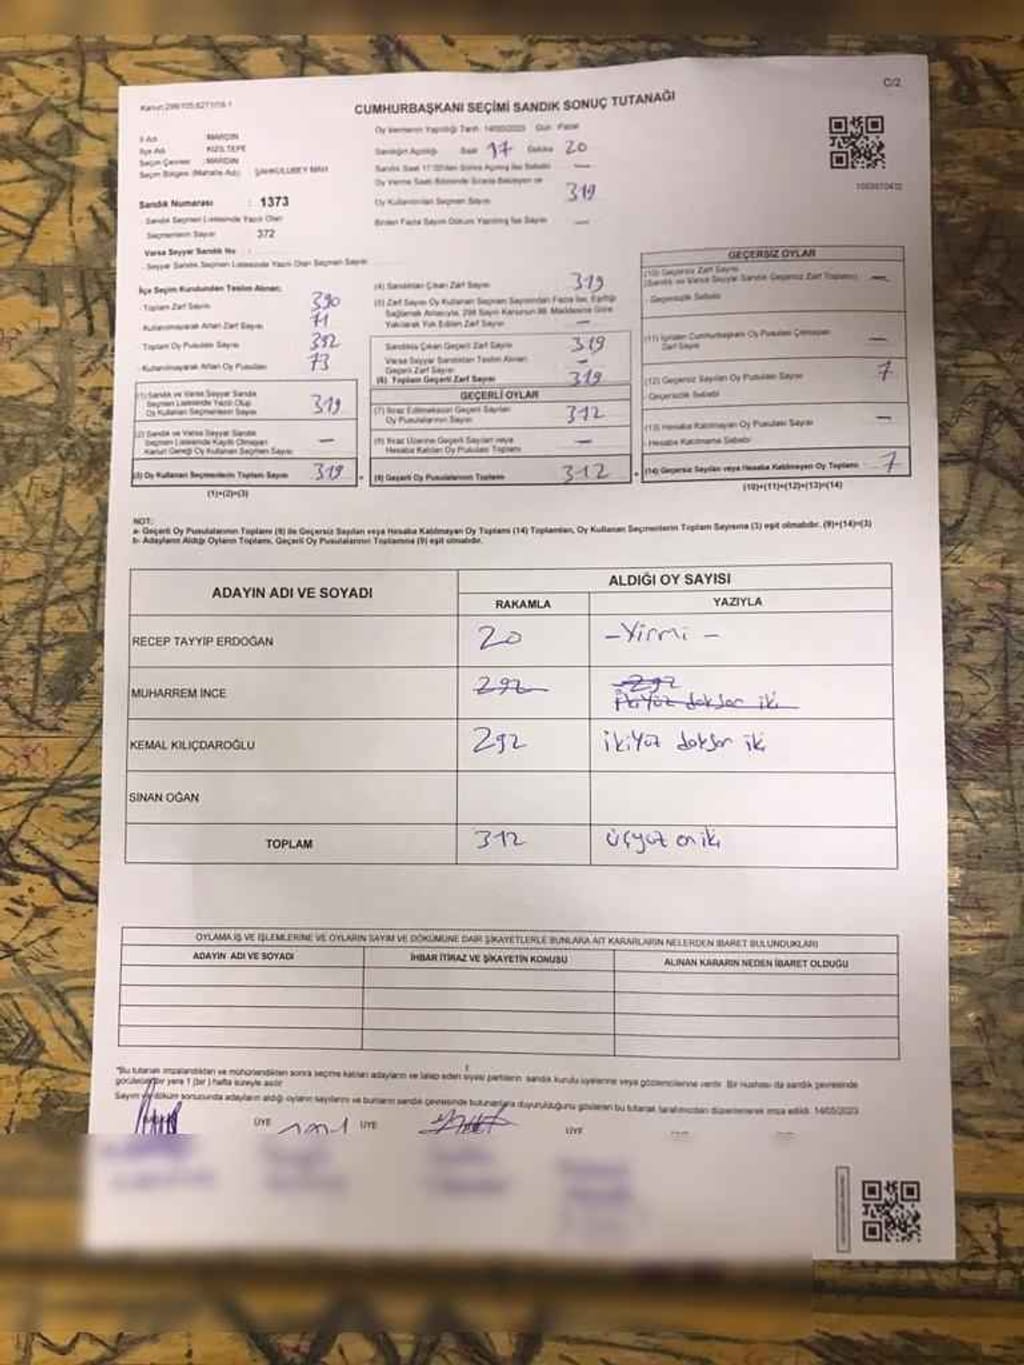 C/2
CUMHURBAŞKANI SEÇİMİ SANDIK SONUÇ TUTANAĞI
İl Adı MARDİN
İlçe Adı KIZILTEPE
Seçim Çevresi : MARDİN
Seçim Bölgesi (Mahalle Adı) ŞAHKULUBEY MAH
Sandık Numarası : 1373
Sandık Seçmen Listesinde Yazılı Olan
Seçmenlerin Sayısı 372
Varsa Seyyar Sandık No
Seyyar Sandık Seçmen Listesinde Yazılı Olan Seçmen Sayısı
Oy Vermenin Yapıldığı Tarih 14/05/2023 Gün Pazar
Sandığın Açıldığı Saat 17 Dakika 20
Oy Kullandırılan Seçmen Sayısı 319
Birden Fazla Sayım Döküm Yapılmış İse Sayısı —
İlçe Seçim Kurulundan Teslim Alınan;
Toplam Zarf Sayısı 390
Kullanılmayarak Artan Zarf Sayısı 71
Toplam Oy Pusulası Sayısı 392
Kullanılmayarak Artan Oy Pusulası 73
(1) Sandık ve Varsa Seyyar Sandık
Seçmen Listesinde Yazılı Olup
Oy Kullanan Seçmenlerin Sayısı 319
(2) Sandık ve Varsa Seyyar Sandık
Seçmen Listesinde Kaydı Olmayan
Kanun Gereği Oy Kullanan Seçmen Sayısı —
(3) Oy Kullanan Seçmenlerin Toplam Sayısı 319
(1)+(2)=(3)
(4) Sandıktan Çıkan Zarf Sayısı 319
(5) Zarf Sayısı Oy Kullanan Seçmen Sayısından Fazla İse, Eşitliği
Sağlamak Amacıyla, 298 Sayılı Kanunun 98. Maddesine Göre
Yakılarak Yok Edilen Zarf Sayısı —
Sandıkta Çıkan Geçerli Zarf Sayısı 319
Varsa Seyyar Sandıktan Teslim Alınan
Geçerli Zarf Sayısı —
(6) Toplam Geçerli Zarf Sayısı 319
GEÇERLİ OYLAR
(7) İtiraz Edilmeksizin Geçerli Sayılan
Oy Pusulalarının Sayısı 312
(8) İtiraz Üzerine Geçerli Sayılan veya
Hesaba Katılan Oy Pusulaları Toplamı —
(9) Geçerli Oy Pusulalarının Toplamı 312
GEÇERSİZ OYLAR
(10) Geçersiz Zarf Sayısı
(Sandık ve Varsa Seyyar Sandık Geçersiz Zarf Toplamı) —
Geçersizlik Sebebi
(11) İçinden Cumhurbaşkanı Oy Pusulası Çıkmayan
Zarf Sayısı —
(12) Geçersiz Sayılan Oy Pusulası Sayısı 7
Geçersizlik Sebebi
(13) Hesaba Katılmayan Oy Pusulası Sayısı —
Hesaba Katılmama Sebebi
(14) Geçersiz Sayılan veya Hesaba Katılmayan Oy Toplamı 7
(10)+(11)+(12)+(13)=(14)
NOT:
a- Geçerli Oy Pusulalarının Toplamı (9) ile Geçersiz Sayılan veya Hesaba Katılmayan Oy Toplamı (14) Toplamları, Oy Kullanan Seçmenlerin Toplam Sayısına (3) eşit olmalıdır. (9)+(14)=(3)
b- Adayların Aldığı Oyların Toplamı, Geçerli Oy Pusulalarının Toplamına (9) eşit olmalıdır.
ADAYIN ADI VE SOYADI
ALDIĞI OY SAYISI
RAKAMLA YAZIYLA
RECEP TAYYİP ERDOĞAN 20 -Yirmi-
MUHARREM İNCE 292 292
ikiYüz doksan iki
KEMAL KILIÇDAROĞLU 292 ikiYüz doksan iki
SİNAN OĞAN
TOPLAM 312 üçyüz on iki
OYLAMA İŞ VE İŞLEMLERİNE VE OYLARIN SAYIM VE DÖKÜMÜNE DAİR ŞİKAYETLERLE BUNLARA AİT KARARLARIN NELERDEN İBARET BULUNDUKLARI
ADAYIN ADI VE SOYADI İHBAR İTİRAZ VE ŞİKAYETİN KONUSU ALINAN KARARIN NEDEN İBARET OLDUĞU
"Bu tutanak imzalandıktan ve mühürlendikten sonra seçime katılan adayların ve talep eden siyasi partilerin sandık kurulu üyelerine veya gözlemcilerine verilir. Bir nüshası da sandık çevresinde
görülebilir bir yere 1 (bir) hafta süreyle asılır
Sayım ve döküm sonucunda adayların aldığı oyların sayılarını ve bunların sandık çevresinde bulunanlara duyurulduğunu gösteren bu tutanak tarafımızdan düzenlenerek imza edildi. 14/05/2023
ÜYE ÜYE ÜYE